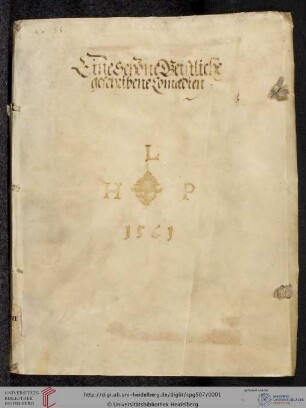 Eine Schöne Geistliche
geschribene Comedien
L
H P
1561
UNIVERSITÄTS-
BIBLIOTHEK
HEIDELBERG
http://digi.ub.uni-heidelberg.de/diglit/cpg507/0001
© Universitätsbibliothek Heidelberg